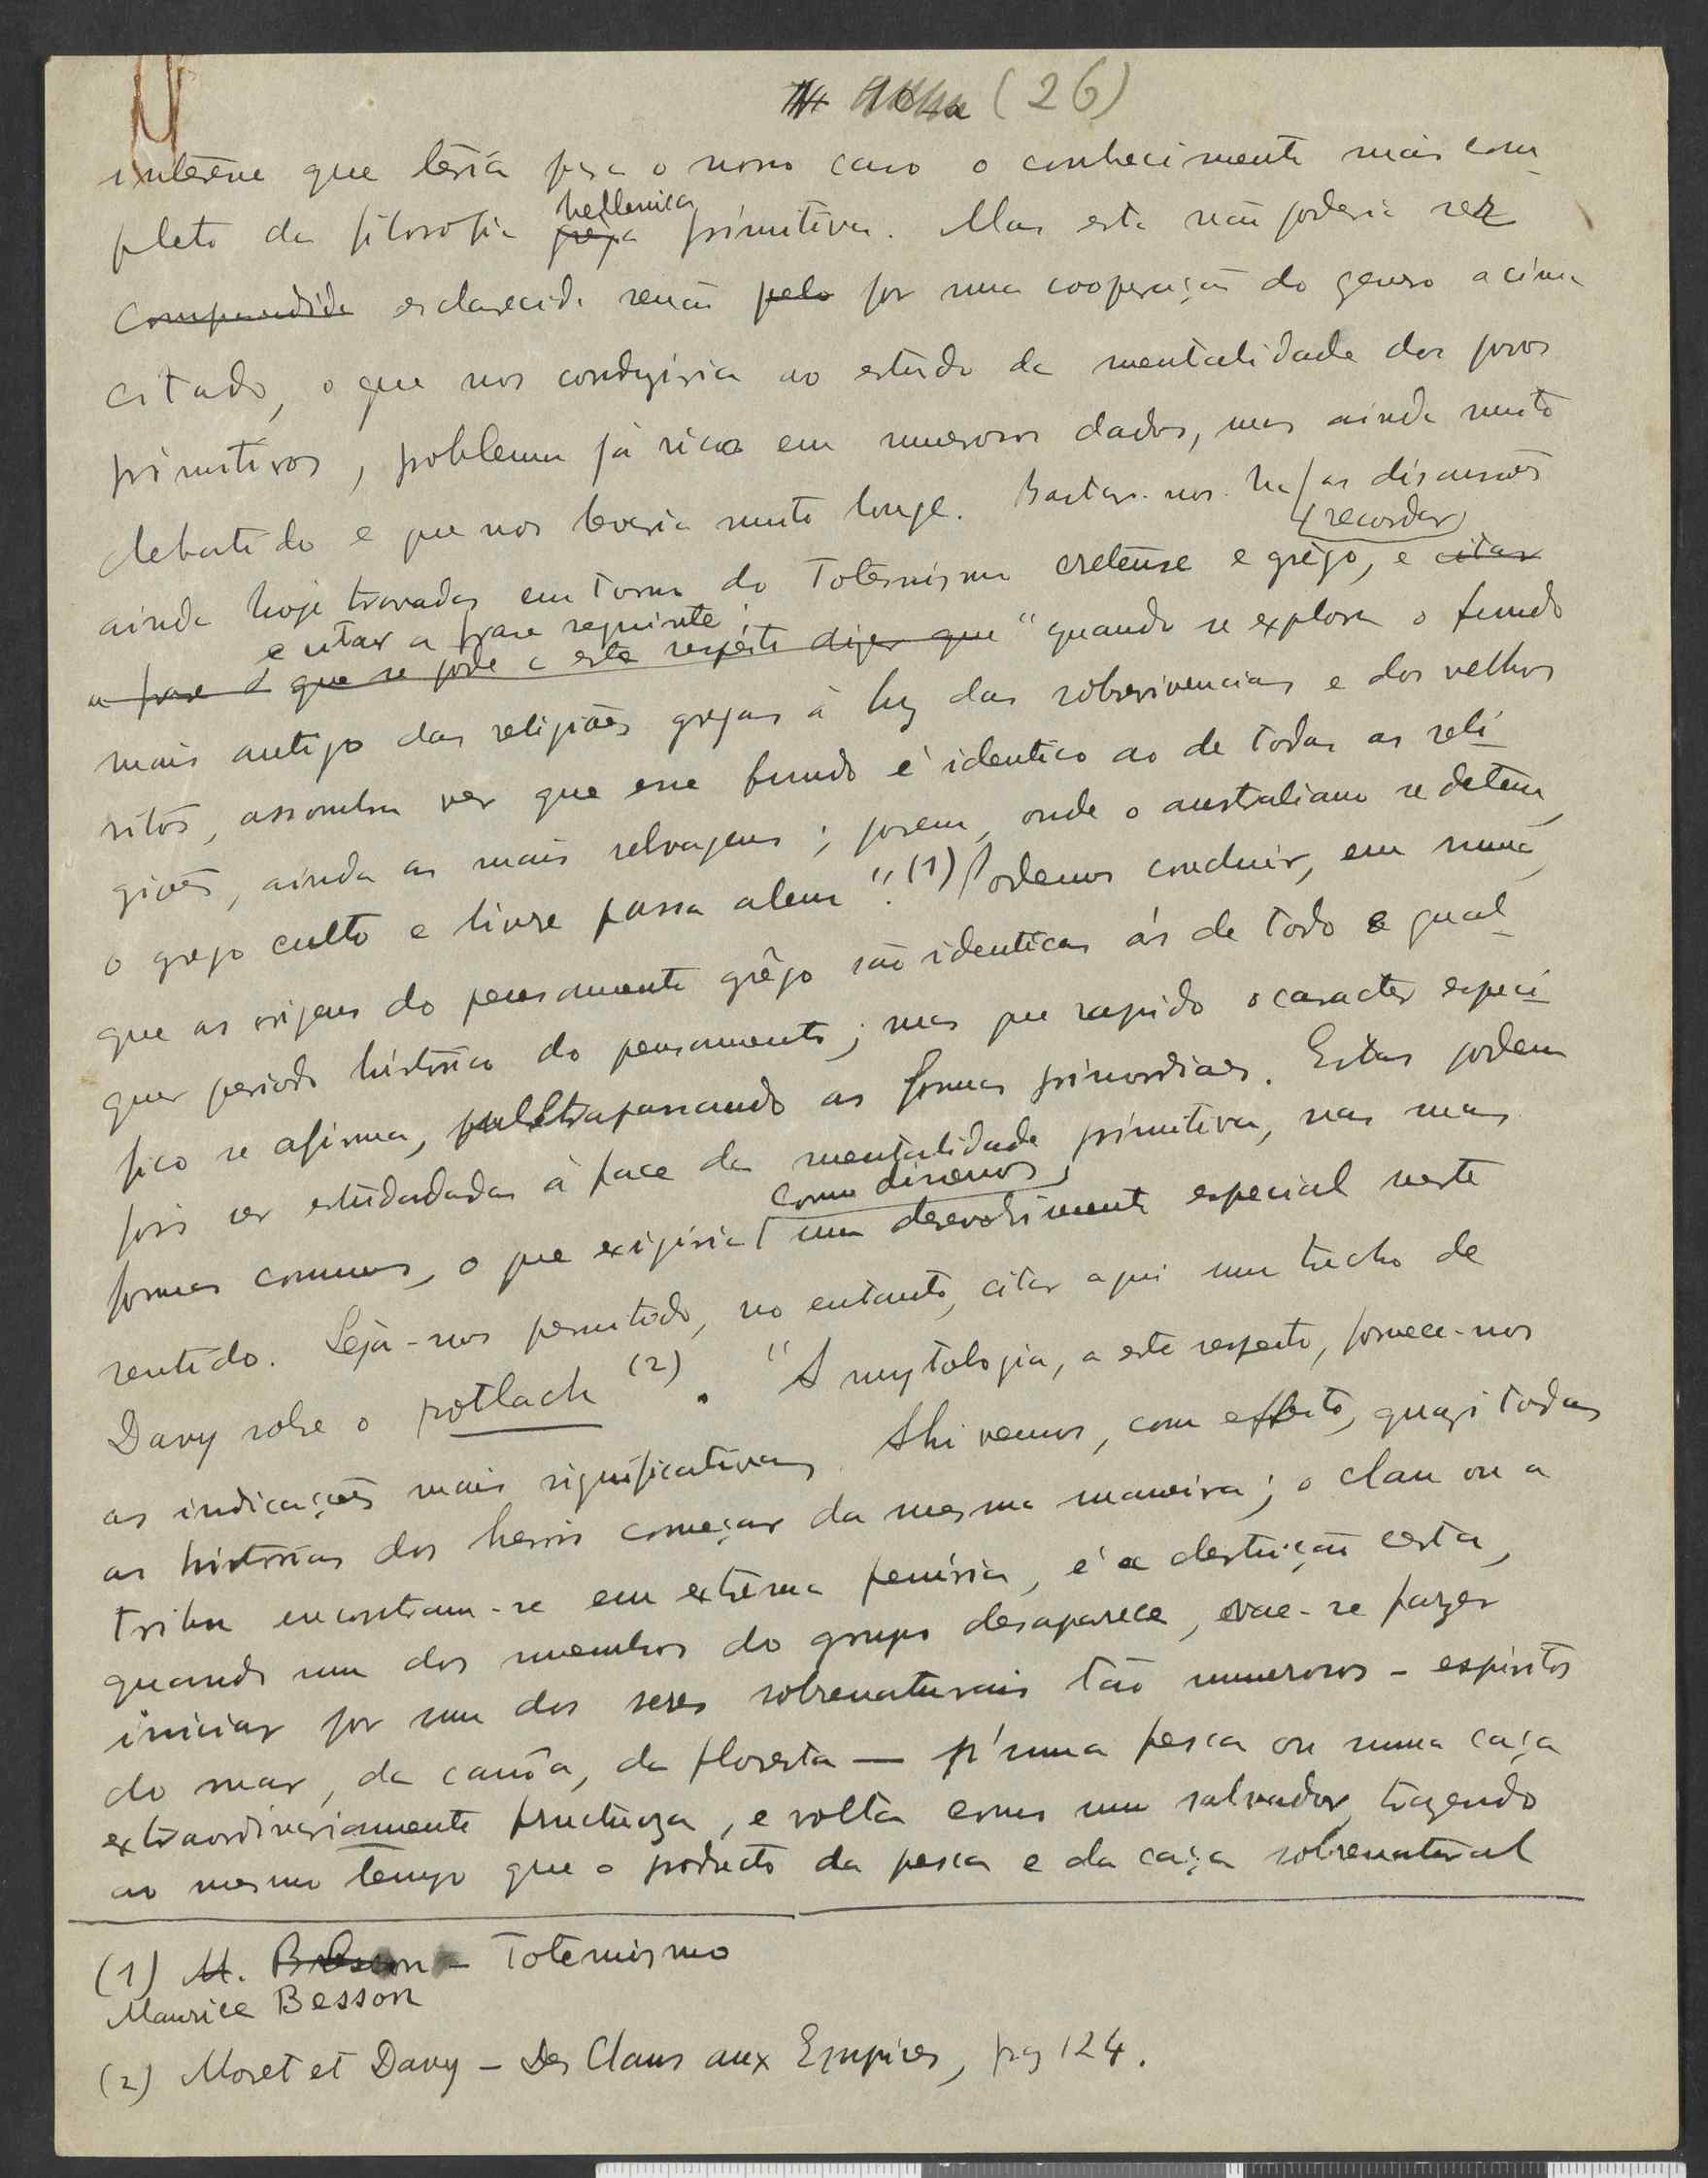 (26)
interesse que teria para o nosso caso o conhecimento mais com_
pleto da filosofia grega hellenica primitiva. Mas esta não poderia ser
comprehendida esclarecida senão pelo por uma cooperação do genero acima
citado, o que nos conduziria ao estudo da mentalidade dos povos
primitivos, problema já rico em numerosos dados, mas ainda muito
debatido e que nos levaria muito longe. Bastar-nos-ha recordar as discussões
ainda hoje travadas em torno do Totemismo cretense e grêgo, e citar
a frase que se pode a este respeito dizer que e citar a frase seguinte: "quando se explora o fundo
mais antigo das religiões gregas á luz das sobrevivencias e dos velhos
ritos, assombra ver que esse fundo é identico ao de todas as reli_
giões, ainda as mais selvagens; porem, onde o australiano se detem,
o grego culto e livre passa alem". (1) Podemos concluir, em suma,
que as origens do pensamento grêgo são identicas ás de todo e qual_
quer periodo histórico do pensamento; mas que rapido o caracter especi_
fico se afirma, ultrapassando as formas primordiaes. Estas podem
pois ser estudadadas á face da mentalidade primitiva, nas suas
formas comuns, o que exigiria como dissemos, um desevolvimento especial neste
sentido. Seja-nos permitido, no entanto, citar aqui um trecho de
Davy sobre o potlach (2). "A mytologia, a este respeito, fornece-nos
as indicações mais significativas. Ahi vemos, com effeito, quazi todas
as histórias dos herois começar da mesma maneira; o clan ou a
tribu encontram-se em extrema penúria, é a destruição certa,
quando um dos membros do grupo desaparece, vae-se fazer
iniciar por um dos seres sobrenaturais tão numerosos - espiritos
do mar, da canôa, da floresta — p'ruma pesca ou numa caça
extraordinariamente fructuoza, e volta como um salvador, trazendo
ao mesmo tempo que o producto da pesca e da caça sobrenatural
(1) M. Besson - Totemismo
Maurice Besson
(2) Moret et Davy - Des Clans aux Empires, pag 124.